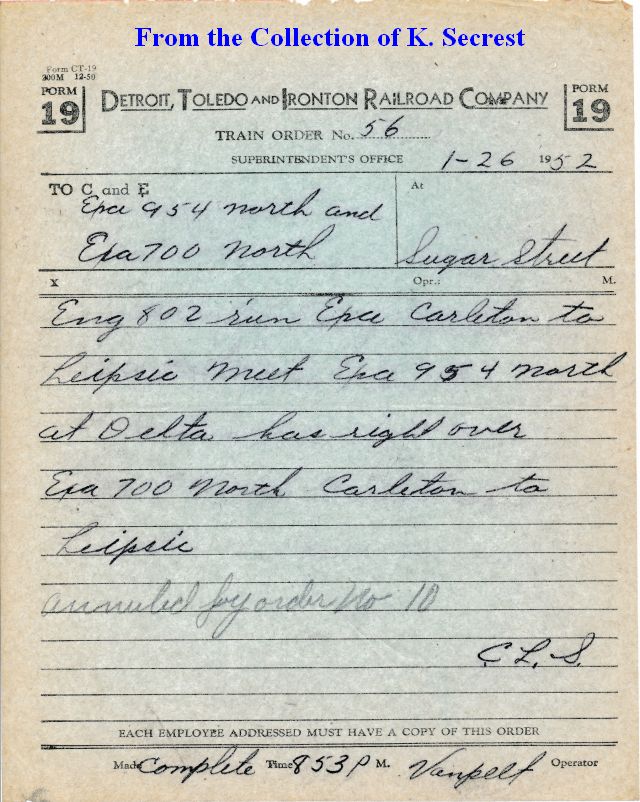 From the Collection of K. Secrest
Form CT-19
300M 12-50
FORM
19
DETROIT, TOLEDO AND IRONTON RAILROAD COMPANY
FORM
19
TRAIN ORDER No. 56
SUPERINTENDENT'S OFFICE 1-26 1952
TO C and E
Exa 954 north and
Exa 700 North
At
Sugar Street
X Opr.: M.
Eng 802 run Exa Carleton to
Leipsic Meet Exa 954 north
at Delta has right over
Exa 700 North Carleton to
Leipsic
annuled by order No 10
C.L.S.
EACH EMPLOYEE ADDRESSED MUST HAVE A COPY OF THIS ORDER
Made Complete Time 853 P M. Vanpelt Operator